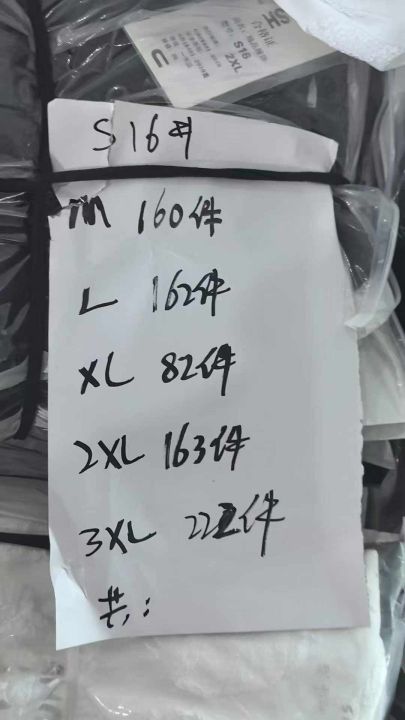 合格证
S16
2XL
S 16#
M 160件
L 162件
XL 82件
2XL 163件
3XL 222件
共: